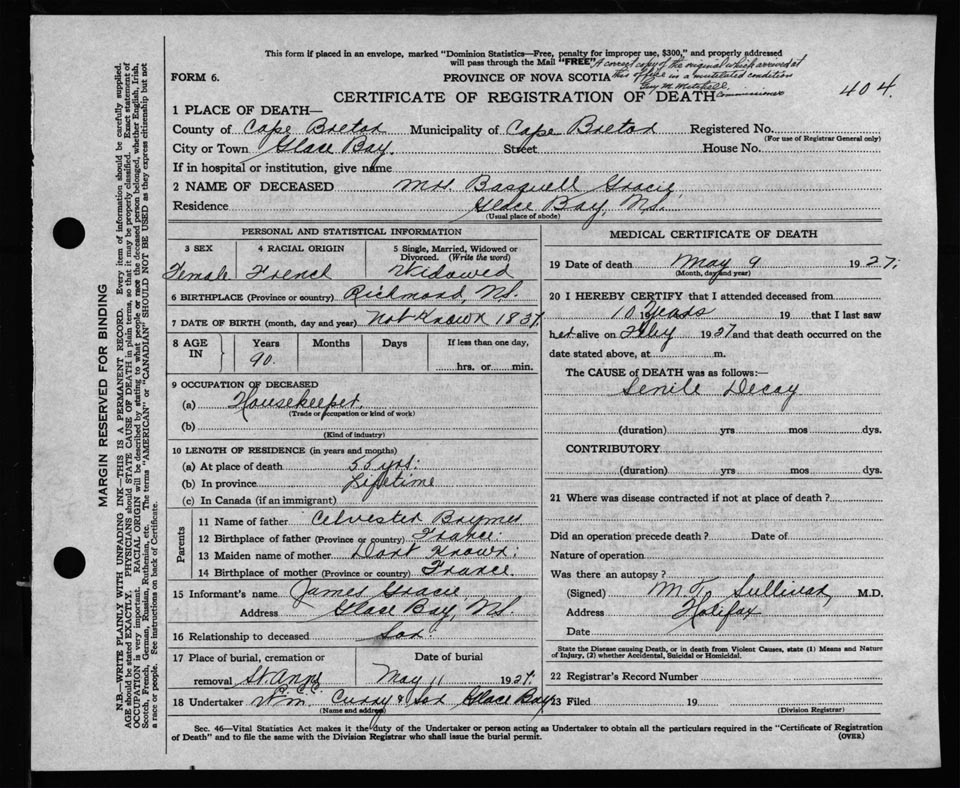 This form if placed in an envelope, marked "Dominion Statistics—Free, penalty for improper use, $300," and properly addressed
will pass through the Mail "FREE"
A correct copy of the original which arrived at
this office in a mutilated condition
Guy M. Mitchell
Commissioner
FORM 6.
PROVINCE OF NOVA SCOTIA
CERTIFICATE OF REGISTRATION OF DEATH
404.
1 PLACE OF DEATH—
County of Cape Breton Municipality of Cape Breton Registered No.
(For use of Registrar General only)
City or Town Glace Bay. Street House No.
If in hospital or institution, give name
2 NAME OF DECEASED Mrs. Gracie,
Residence Glace Bay, N.S.
(Usual place of abode)
PERSONAL AND STATISTICAL INFORMATION
3 SEX 4 RACIAL ORIGIN 5 Single, Married, Widowed or Divorced. (Write the word)
Female French Widowed
6 BIRTHPLACE (Province or country) Richmond, N.S.
7 DATE OF BIRTH (month, day and year) Not Known 1837.
8 AGE IN Years Months Days If less than one day,
90. hrs. or min.
9 OCCUPATION OF DECEASED
(a) Housekeeper.
(Trade or occupation or kind of work)
(b)
(Kind of industry)
10 LENGTH OF RESIDENCE (in years and months)
(a) At place of death 55 yrs.
(b) In province Lifetime
(c) In Canada (if an immigrant)
Parents
11 Name of father Celvester
12 Birthplace of father (Province or country) France.
13 Maiden name of mother Dont Known.
14 Birthplace of mother (Province or country) France.
15 Informant's name James Gracie,
Address Glace Bay, N.S.
16 Relationship to deceased Son.
17 Place of burial, cremation or removal Date of burial
St. Anns May 11 1927.
18 Undertaker Wm. Curry & Son Glace Bay
(Name and address)
MEDICAL CERTIFICATE OF DEATH
19 Date of death May 9 1927.
(Month, day and year)
20 I HEREBY CERTIFY that I attended deceased from
10 Years 19 19 that I last saw
her alive on Feby 1927 and that death occurred on the
date stated above, at m.
The CAUSE of DEATH was as follows:—
Senile Decay
(duration) yrs mos dys.
CONTRIBUTORY
(duration) yrs mos dys.
21 Where was disease contracted if not at place of death?
Did an operation precede death? Date of
Nature of operation
Was there an autopsy?
(Signed) M. T. Sullivan, M.D.
Address Halifax
Date
State the Disease causing Death, or in death from Violent Causes, state (1) Means and Nature
of Injury, (2) whether Accidental, Suicidal or Homicidal.
22 Registrar's Record Number
23 Filed 19
(Division Registrar)
Sec. 46—Vital Statistics Act makes it the duty of the Undertaker or person acting as Undertaker to obtain all the particulars required in the "Certificate of Registration
of Death" and to file the same with the Division Registrar who shall issue the burial permit.
(OVER)
MARGIN RESERVED FOR BINDING
N.B.—WRITE PLAINLY WITH UNFADING INK—THIS IS A PERMANENT RECORD. Every item of information should be carefully supplied.
AGE should be stated EXACTLY. PHYSICIANS should STATE CAUSE OF DEATH in plain terms, so that it may be properly classified. Exact statement of
OCCUPATION is very important. RACIAL ORIGIN will be described by stating to what people or race the deceased person belonged, whether English, Irish,
Scotch, French, German, Russian, Ruthenian, etc. The terms "AMERICAN" or "CANADIAN" SHOULD NOT BE USED as they express citizenship but not
a race or people. See instructions on back of Certificate.